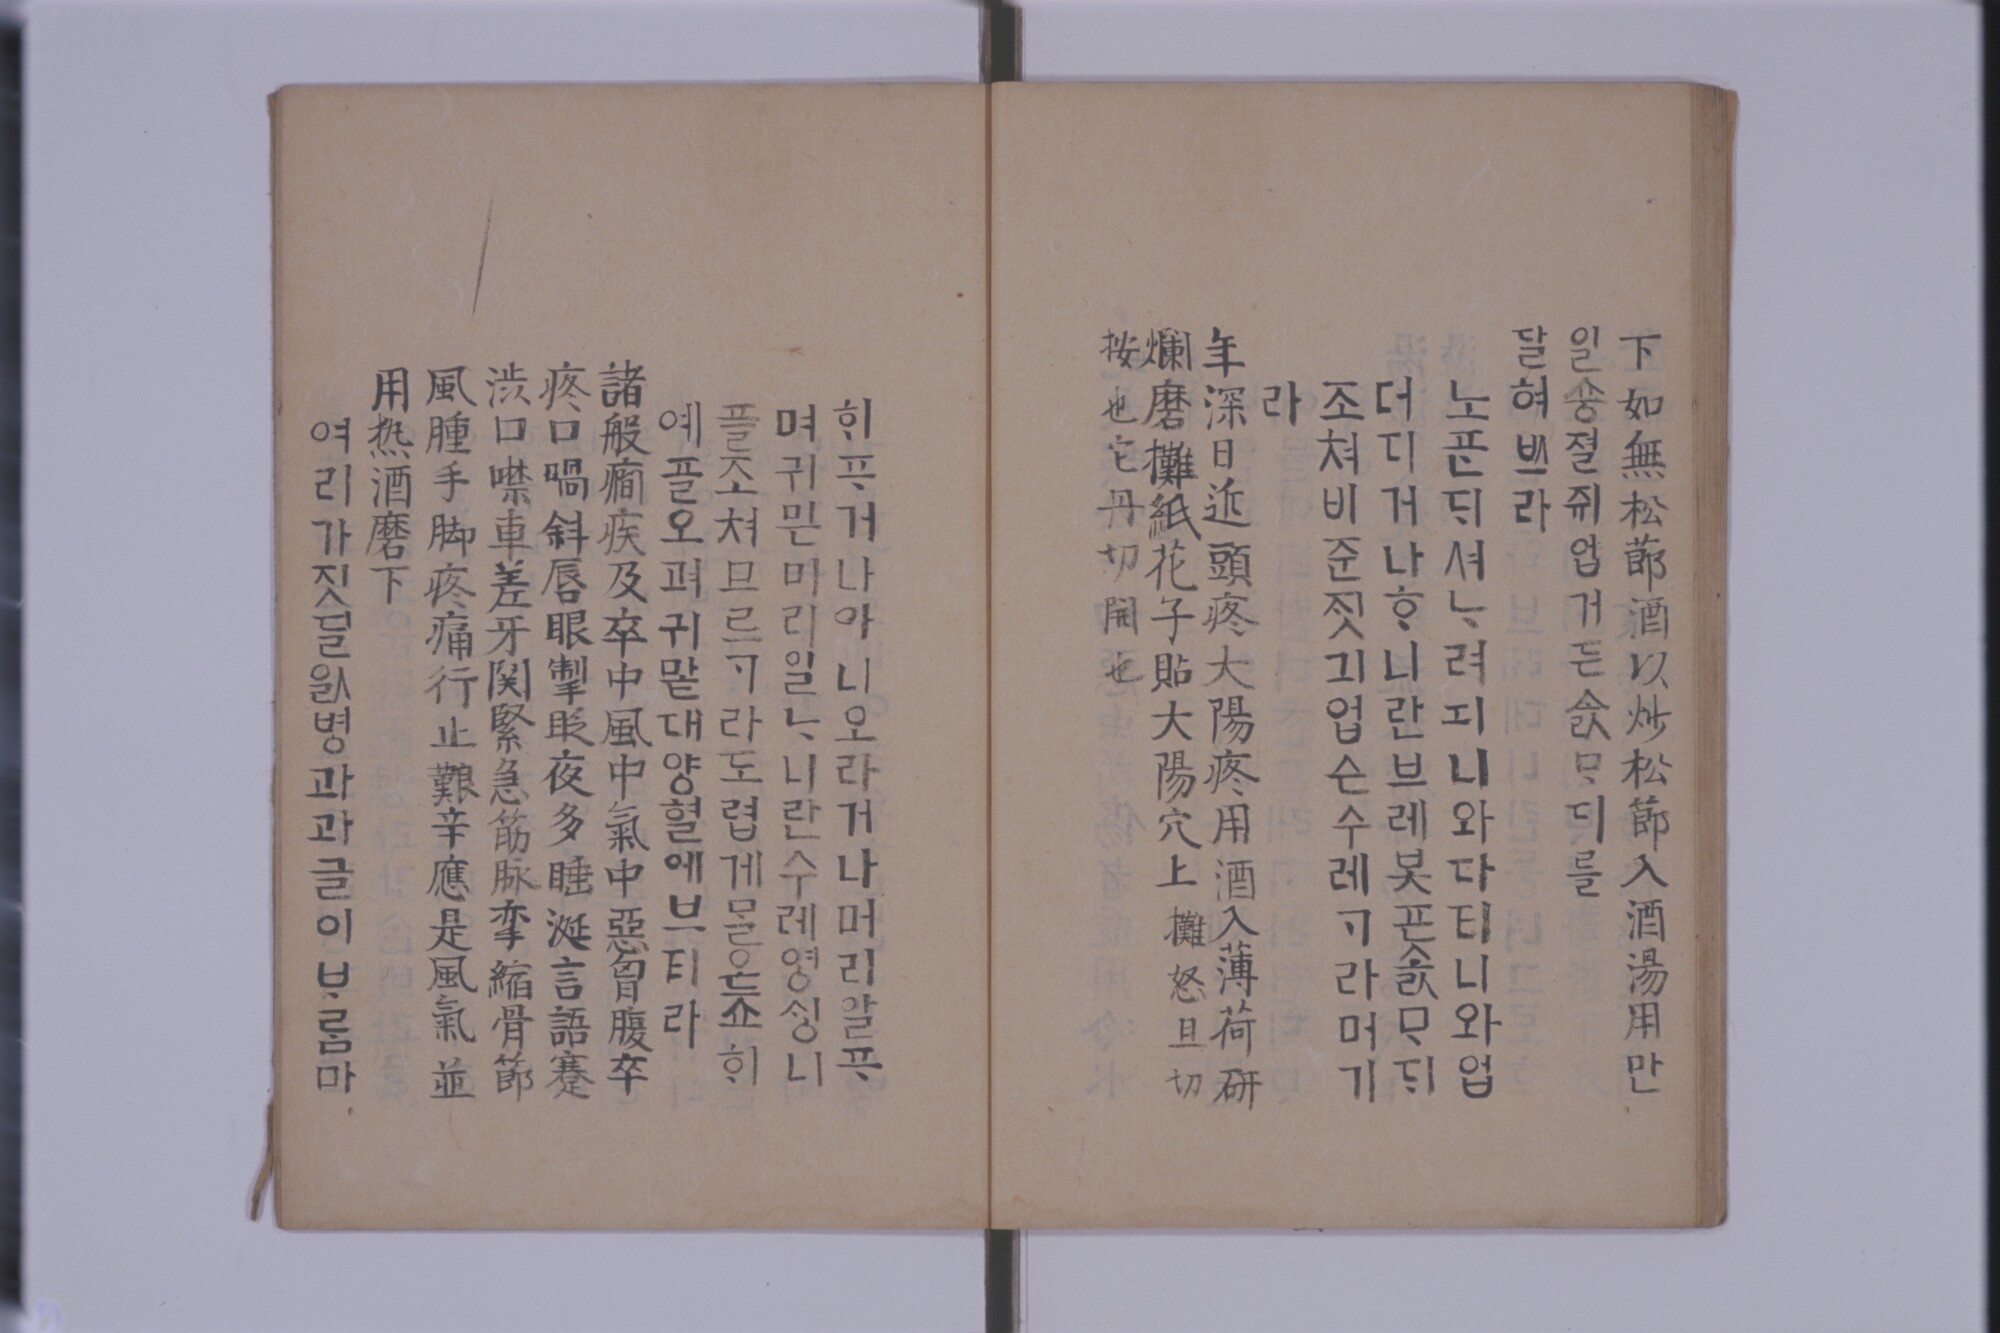 下如無松莭酒以炒松莭入酒湯用만
일숑졀쥐업거든솑ᄆᆞᄃᆡ를
달혀ᄡᅳ라
노ᄑᆞᆫᄃᆡ셔ᄂᆞ려피니와다티니와업
더디거나ᄒᆞ니란브레봇ᄑᆞᆫ솑ᄆᆞᄃᆡ
조쳐비준찟긔업슨수레ᄀᆞ라머기
라
年深日近頭疼大陽疼用酒入薄荷研
爛磨攤紙花子貼大陽穴上攤怒旦切
按也它丹切開也
ᄒᆡᄑᆞ거나아니오라거나머리알ᄑᆞ
며귀믿마리일ᄂᆞ니란수레영싱니
플조쳐므르ᄀᆞ라도렵게ᄆᆡᆼᄀᆞᆫ죠ᄒᆡ
예플오려귀맡대양혈에브티라
諸般癎疾及卒中風中氣中惡胷腹卒
疼口喎斜唇眼掣眨夜多睡涎言語蹇
渋口噤車差牙関緊急筋脉挛縮骨節
風腫手脚疼痛行止艱辛應是風氣並
用热酒磨下
여리가짓딜ᄋᆞᆳ병과과글이ᄇᆞᄅᆞᆷ마